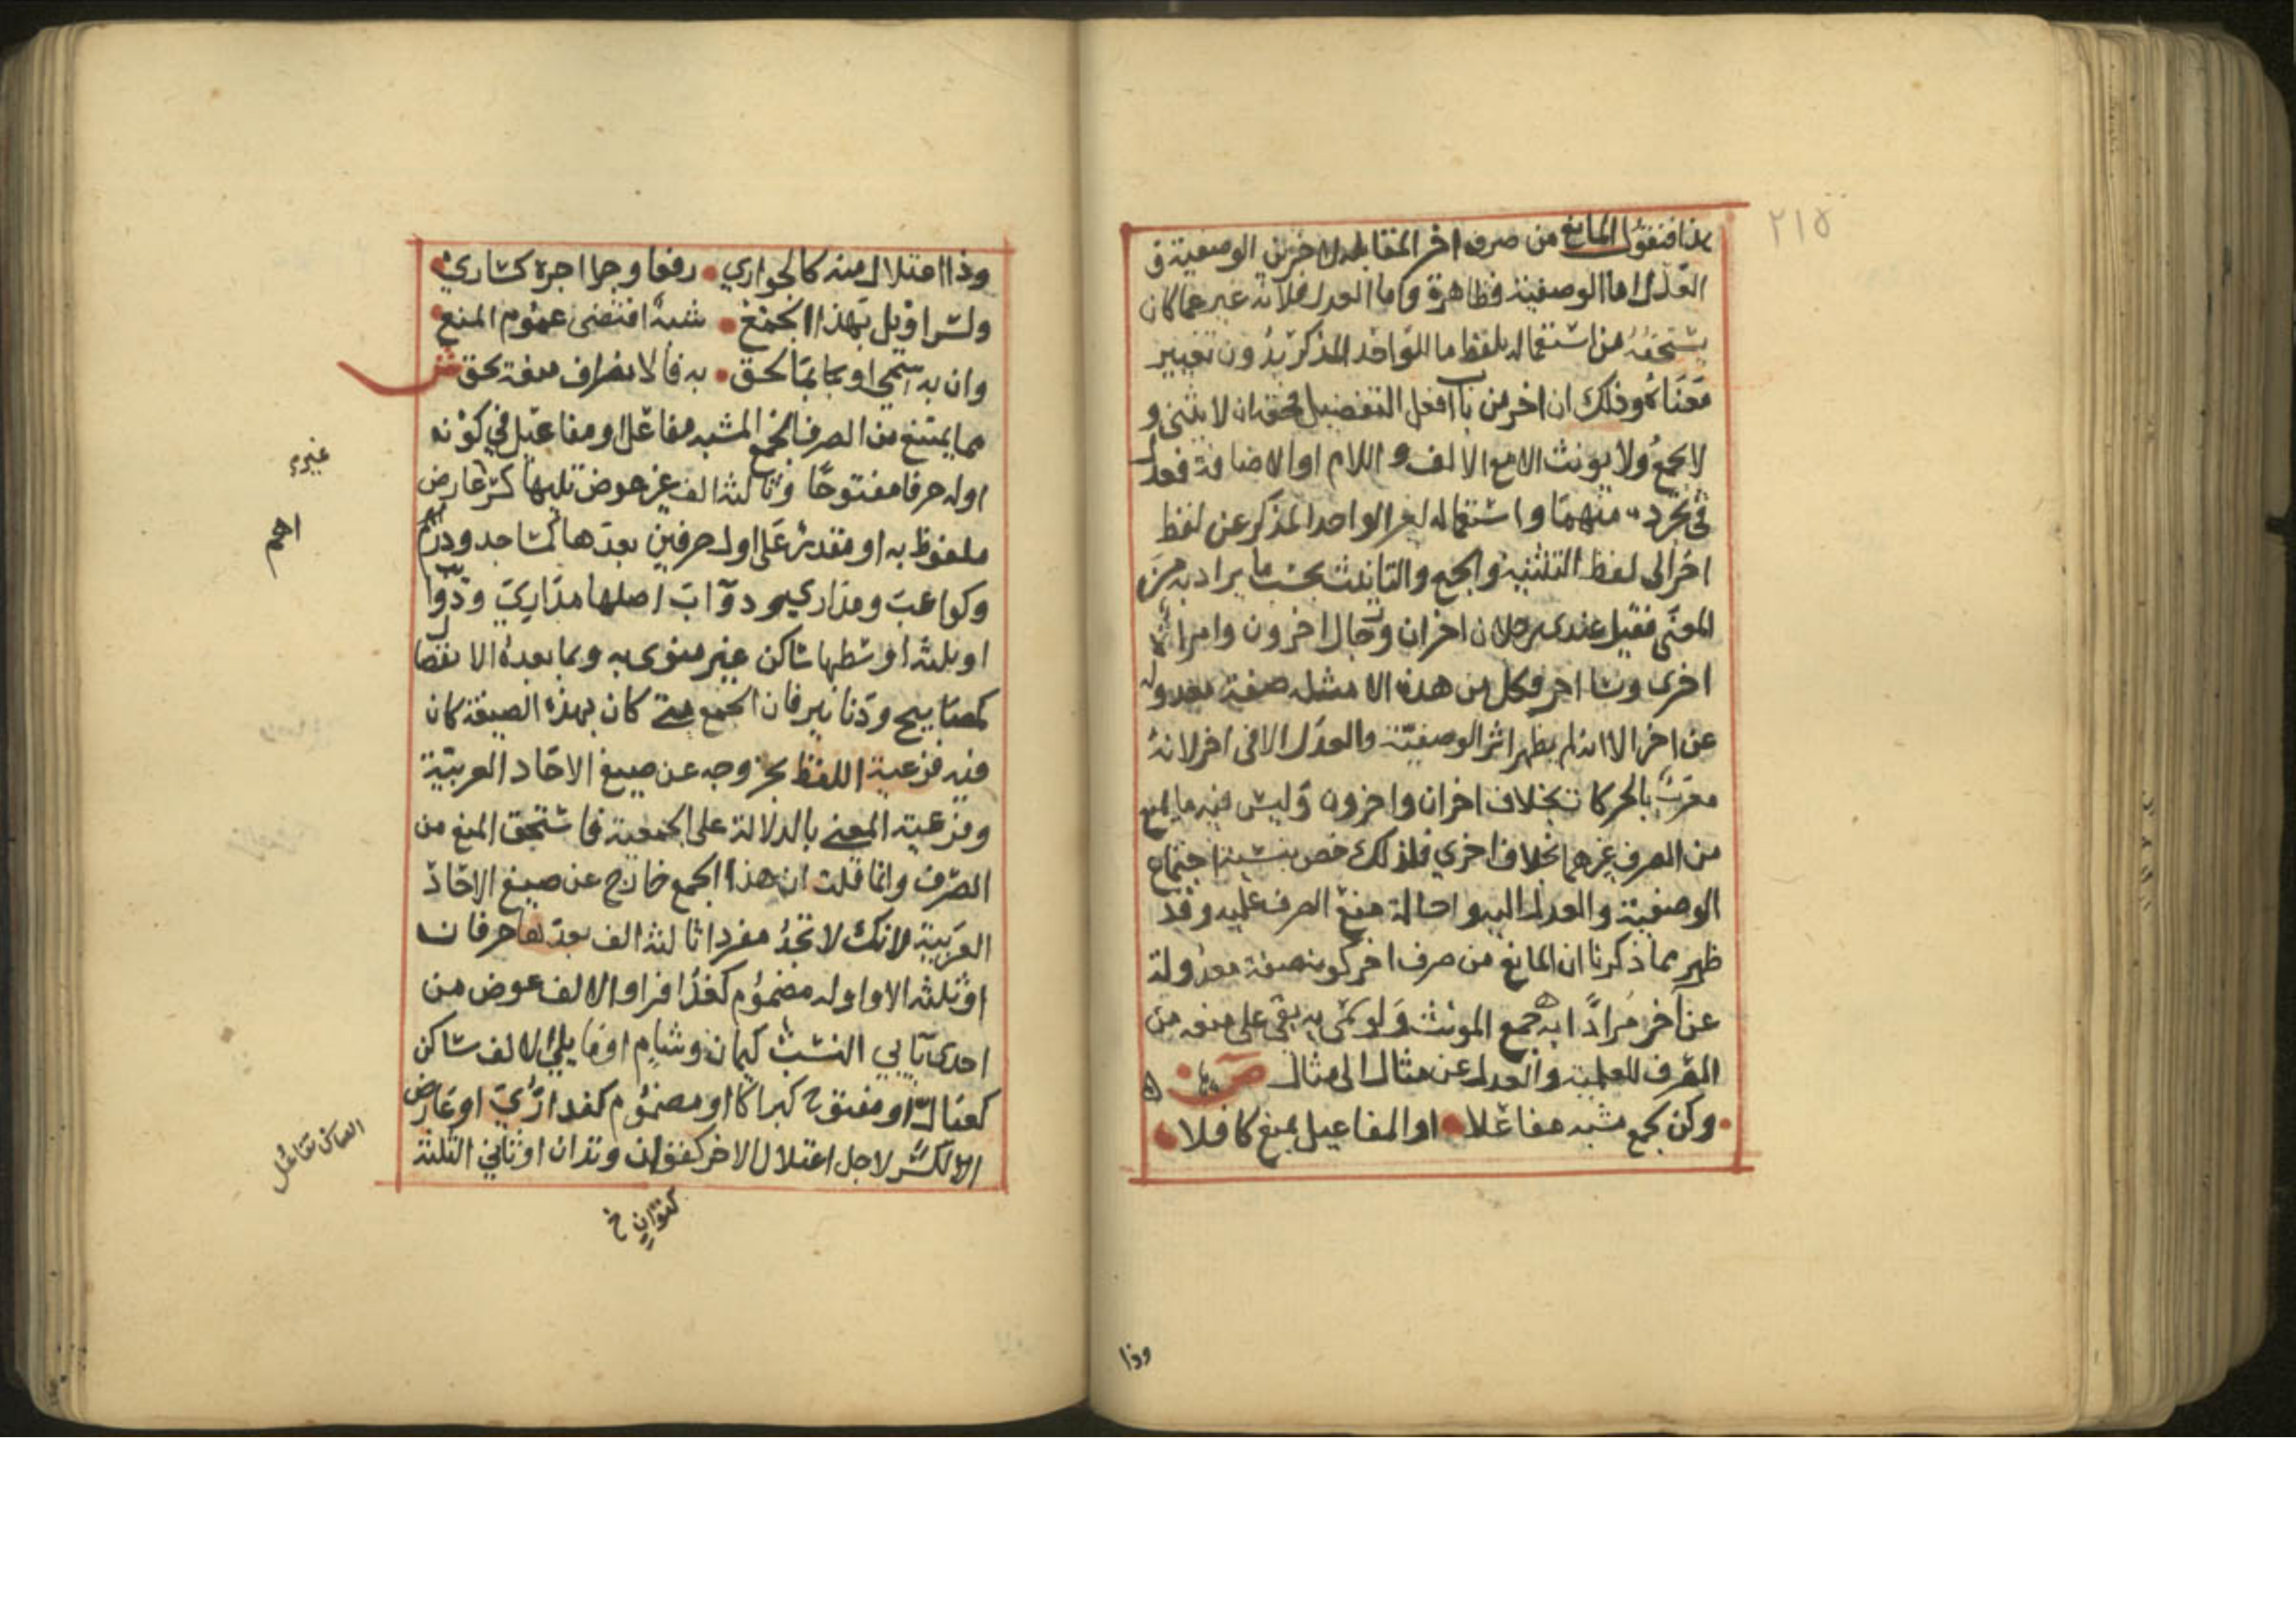 ٢١٥
هذا فنقول المانع من صرف اخر المقابل لاخرين الوصفية و
العدل اما الوصفية فظاهرة واما العدل فلانه غير عما كان
يستحقه من استعماله بلفظ ما للواحد المذكر بدون تغيير
معناه وذلك ان اخر من باب افعل التفضيل فحقه ان لا يثنى و
لا يجمع ولا يونث الا مع الالف و اللام او الاضافة فعدل
في تجرده منهما واستعماله لغير الواحد المذكر عن لفظ
اخر الى لفظ التثنية والجمع والتانيث بحسب ما يراد به من
المعنى فقيل عندي رجلان اخران ورجال اخرون وامراة
اخرى ونسا اخر فكل من هذه الامثلة صفة معدولة
عن اخر الا انه لم يظهر اثر الوصفية والعدل الا في اخر لانه
معرب بالحركات بخلاف اخران واخرون وليس فيه ما يمنع
من الصرف غيرهما بخلاف اخري فلذلك خص بنسبة اجتماع
الوصفية والعدل اليه واحالة منع الصرف عليه وقد
ظهر مما ذكرنا ان المانع من صرف اخر كونه صفة معدولة
عن اخر مرادا به جمع المونث ولو سمى به بقي على منعه من
الصرف للعلمية والعدل عن مثال الى مثال ص
وكن لجمع مشبه مفاعلا • او المفاعيل بمنع كافلا •
وذا
وذا اعتلال منه كالجواري • رفعا وجرا اجره كساري •
ولسراويل بهذا الجمع • شبه اقتضى عموم المنع •
وان به سمى او بما لحق • به فالانصراف منعه يحق ش
مما يمنع من الصرف الجمع المشبه مفاعل او مفاعيل في كونه
اوله حرفا مفتوحا وثالثه الف غير عوض تليها كسر غير عارض
ملفوظ به او مقدر على اول حرفين بعدها كمساجد ودراهم
وكواعب ومداري ودوآب اصلها مداري ودوابب
او ثلثه اوسطها ساكن غير منوي به وبما بعده الانفصال
كمصابيح ودنانير فان الجمع متى كان بهذه الصيغة كان
فيه فرعية اللفظ بخروجه عن صيغ الاحاد العربية
وفرعية المعنى بالدلالة على الجمعية فاستحق المنع من
الصرف وانما قلت ان هذا الجمع خارج عن صيغ الاحاد
العربية لانك لا تجد مفردا ثالثه الف بعدها حرفان
او ثلثه الا واوله مضموم كعذافر او الالف عوض من
احدى يآيي النسب كيمان وشام او ما يلي الالف ساكن
كعبال او مفتوح كبراكا او مضموم كتدارُك او عارض
الكسر لاجل اعتلال الاخر كتوان وتدان او ثاني الثلثة
غيره
اهم
العماكن تفاعل
كتوان خ